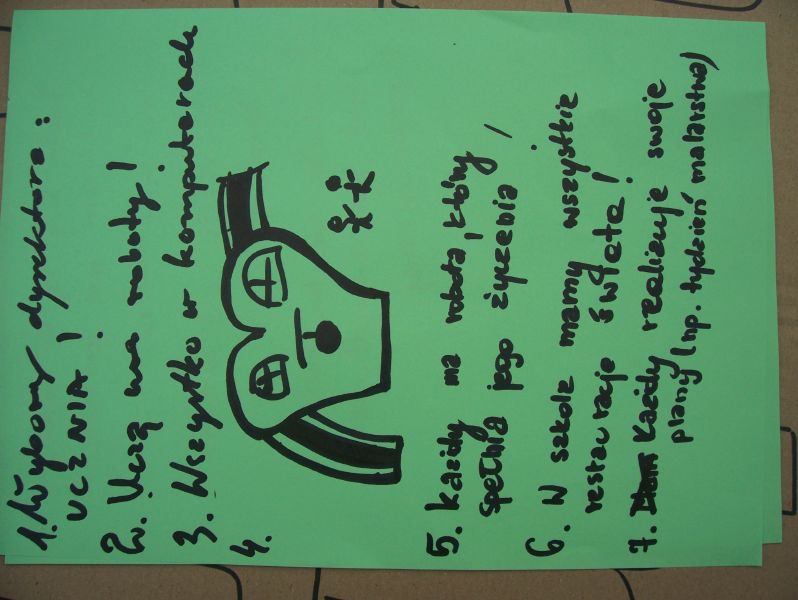 1. Wybory dyrektora:
UCZNIA!
2. Uczą nas roboty!
3. Wszystko w komputerach
4.
5. Każdy ma robota, który
spełnia jego życzenia!
6. W szkole mamy wszystkie
restauracje świata!
7. Każdy realizuje swoje
plany (np. tydzień malarstwa)